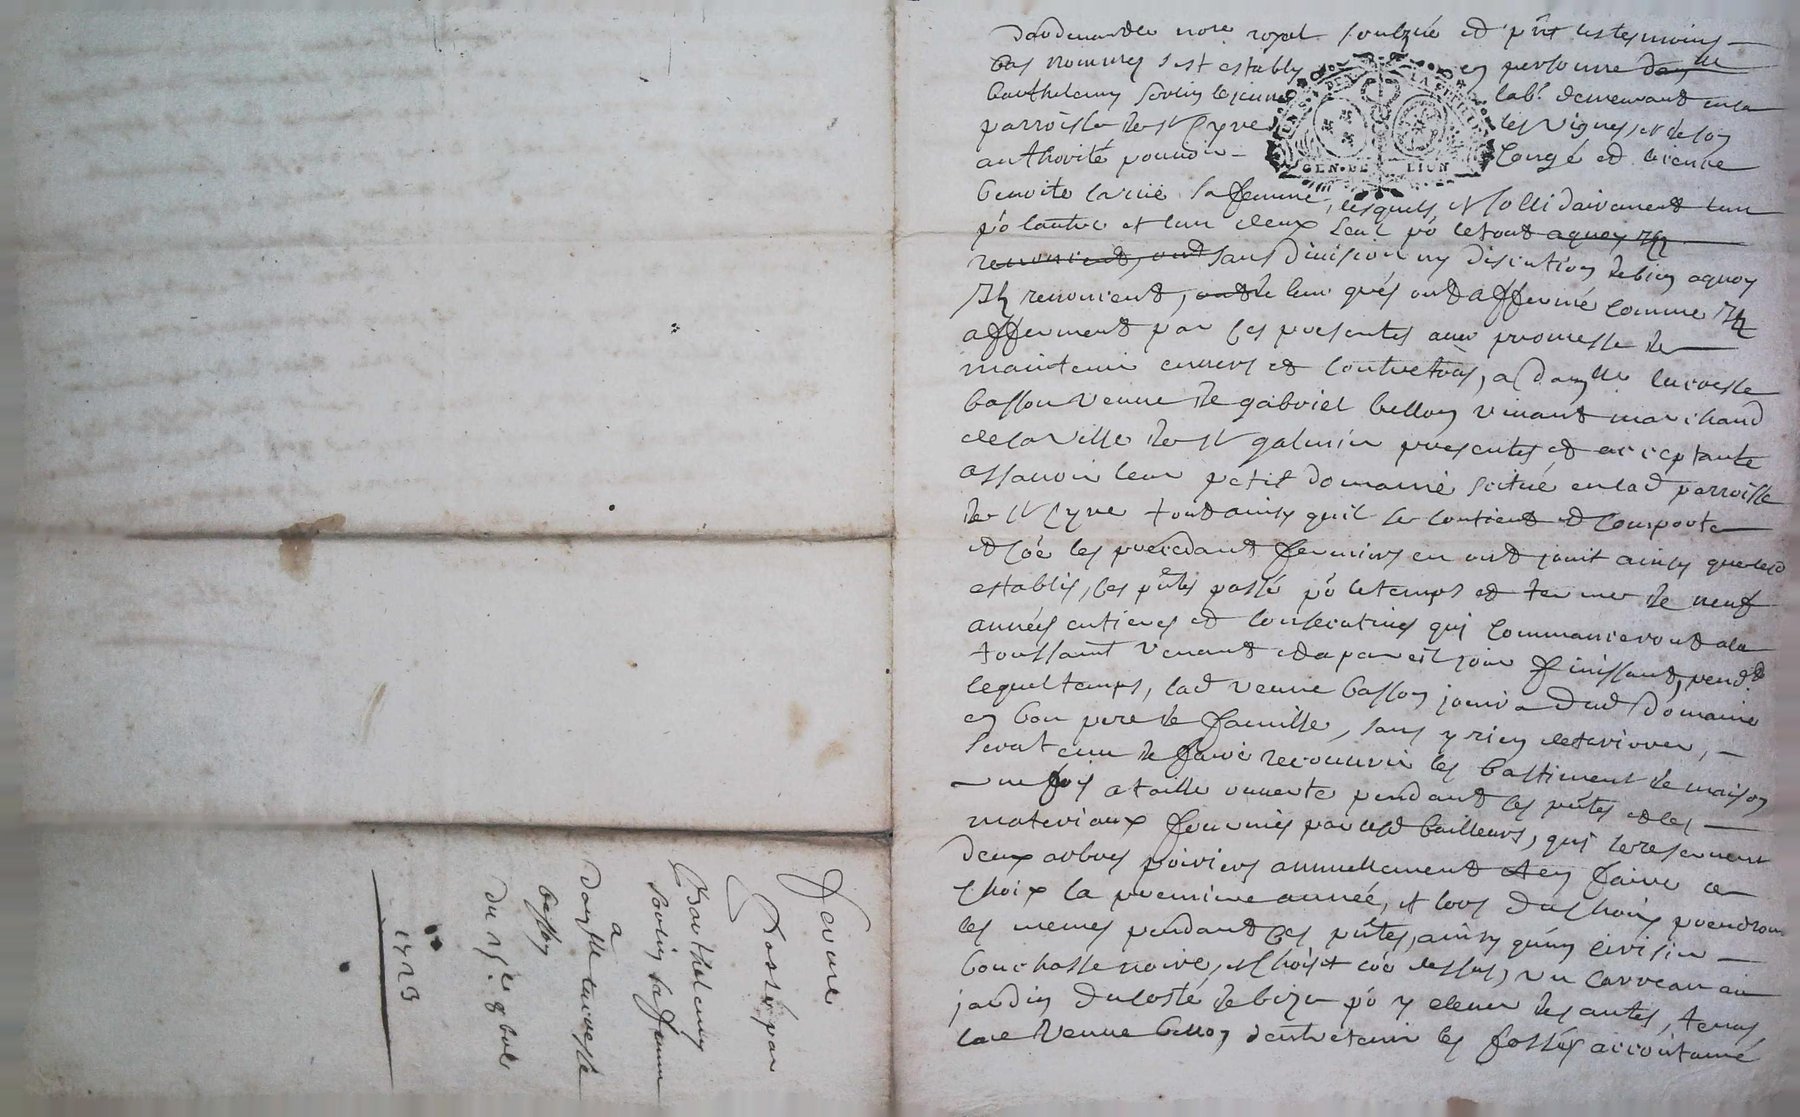 pardevant le nore royal soubzné et p̃nt les tesmoins
bas nommes s'est estably en personne
barthelemy le jeune lab.r demeurant en la
parroisse de st Cyre les Vignes, et de son
authorité pouvoir congé et licence
benoite sa femme, lesquels et sollidairement l'un
pō l'autre et l'un deux seul pō le tout aquoy Ilz
renoncent, ont sans division ny discution de bien aquoy
Ilz renoncent, de leur grés ont affermé comme Ilz
afferment par ces presentes avec promesse de
maintenir envers et contre tous, a lucresse
basson veuve de gabriel bellon vivant marchand
de la ville de st galmier presente et acceptante
assavoir leur petit domaine scitué en lad parroisse
de st Cyre tout ainsy quil se contient et comporte
et cōe les precedant fermiers en ont jouit ainsy que lesd
establis, les p̃ntes passé pō le temps et terme de neuf
années entieres et consecutives qui commanceront a la
toussaint venant et a pareil jour finissant, pend.t
lequel temps, lad veuve basson jouira dud domaine
en bon pere de famille, sans y rien deteriorer,
sera tenue de faire recouvrir les bastiment de maison
une fois a taille ouverte pendant les p̃ntes et les
materiaux fournis par lesd bailleurs, qui se reservent
deux arbres poiriers annuellement et en faire ce
choix la premiere année, et lors du choix prendront
les memes pendant ces p̃ntes, ainsy qu'un cerisier
noire, et choisit cōe dessus, un carreau au
jardin du costé de bize pō y elever des antes, tenus
lad veuve d'entretenir les fossés accoutumé
ferme
passé par
Barthelemy
sa femme
a
Dam.lle lucresse
basson
du 15.e 8bre
1723
GEN. DE LION